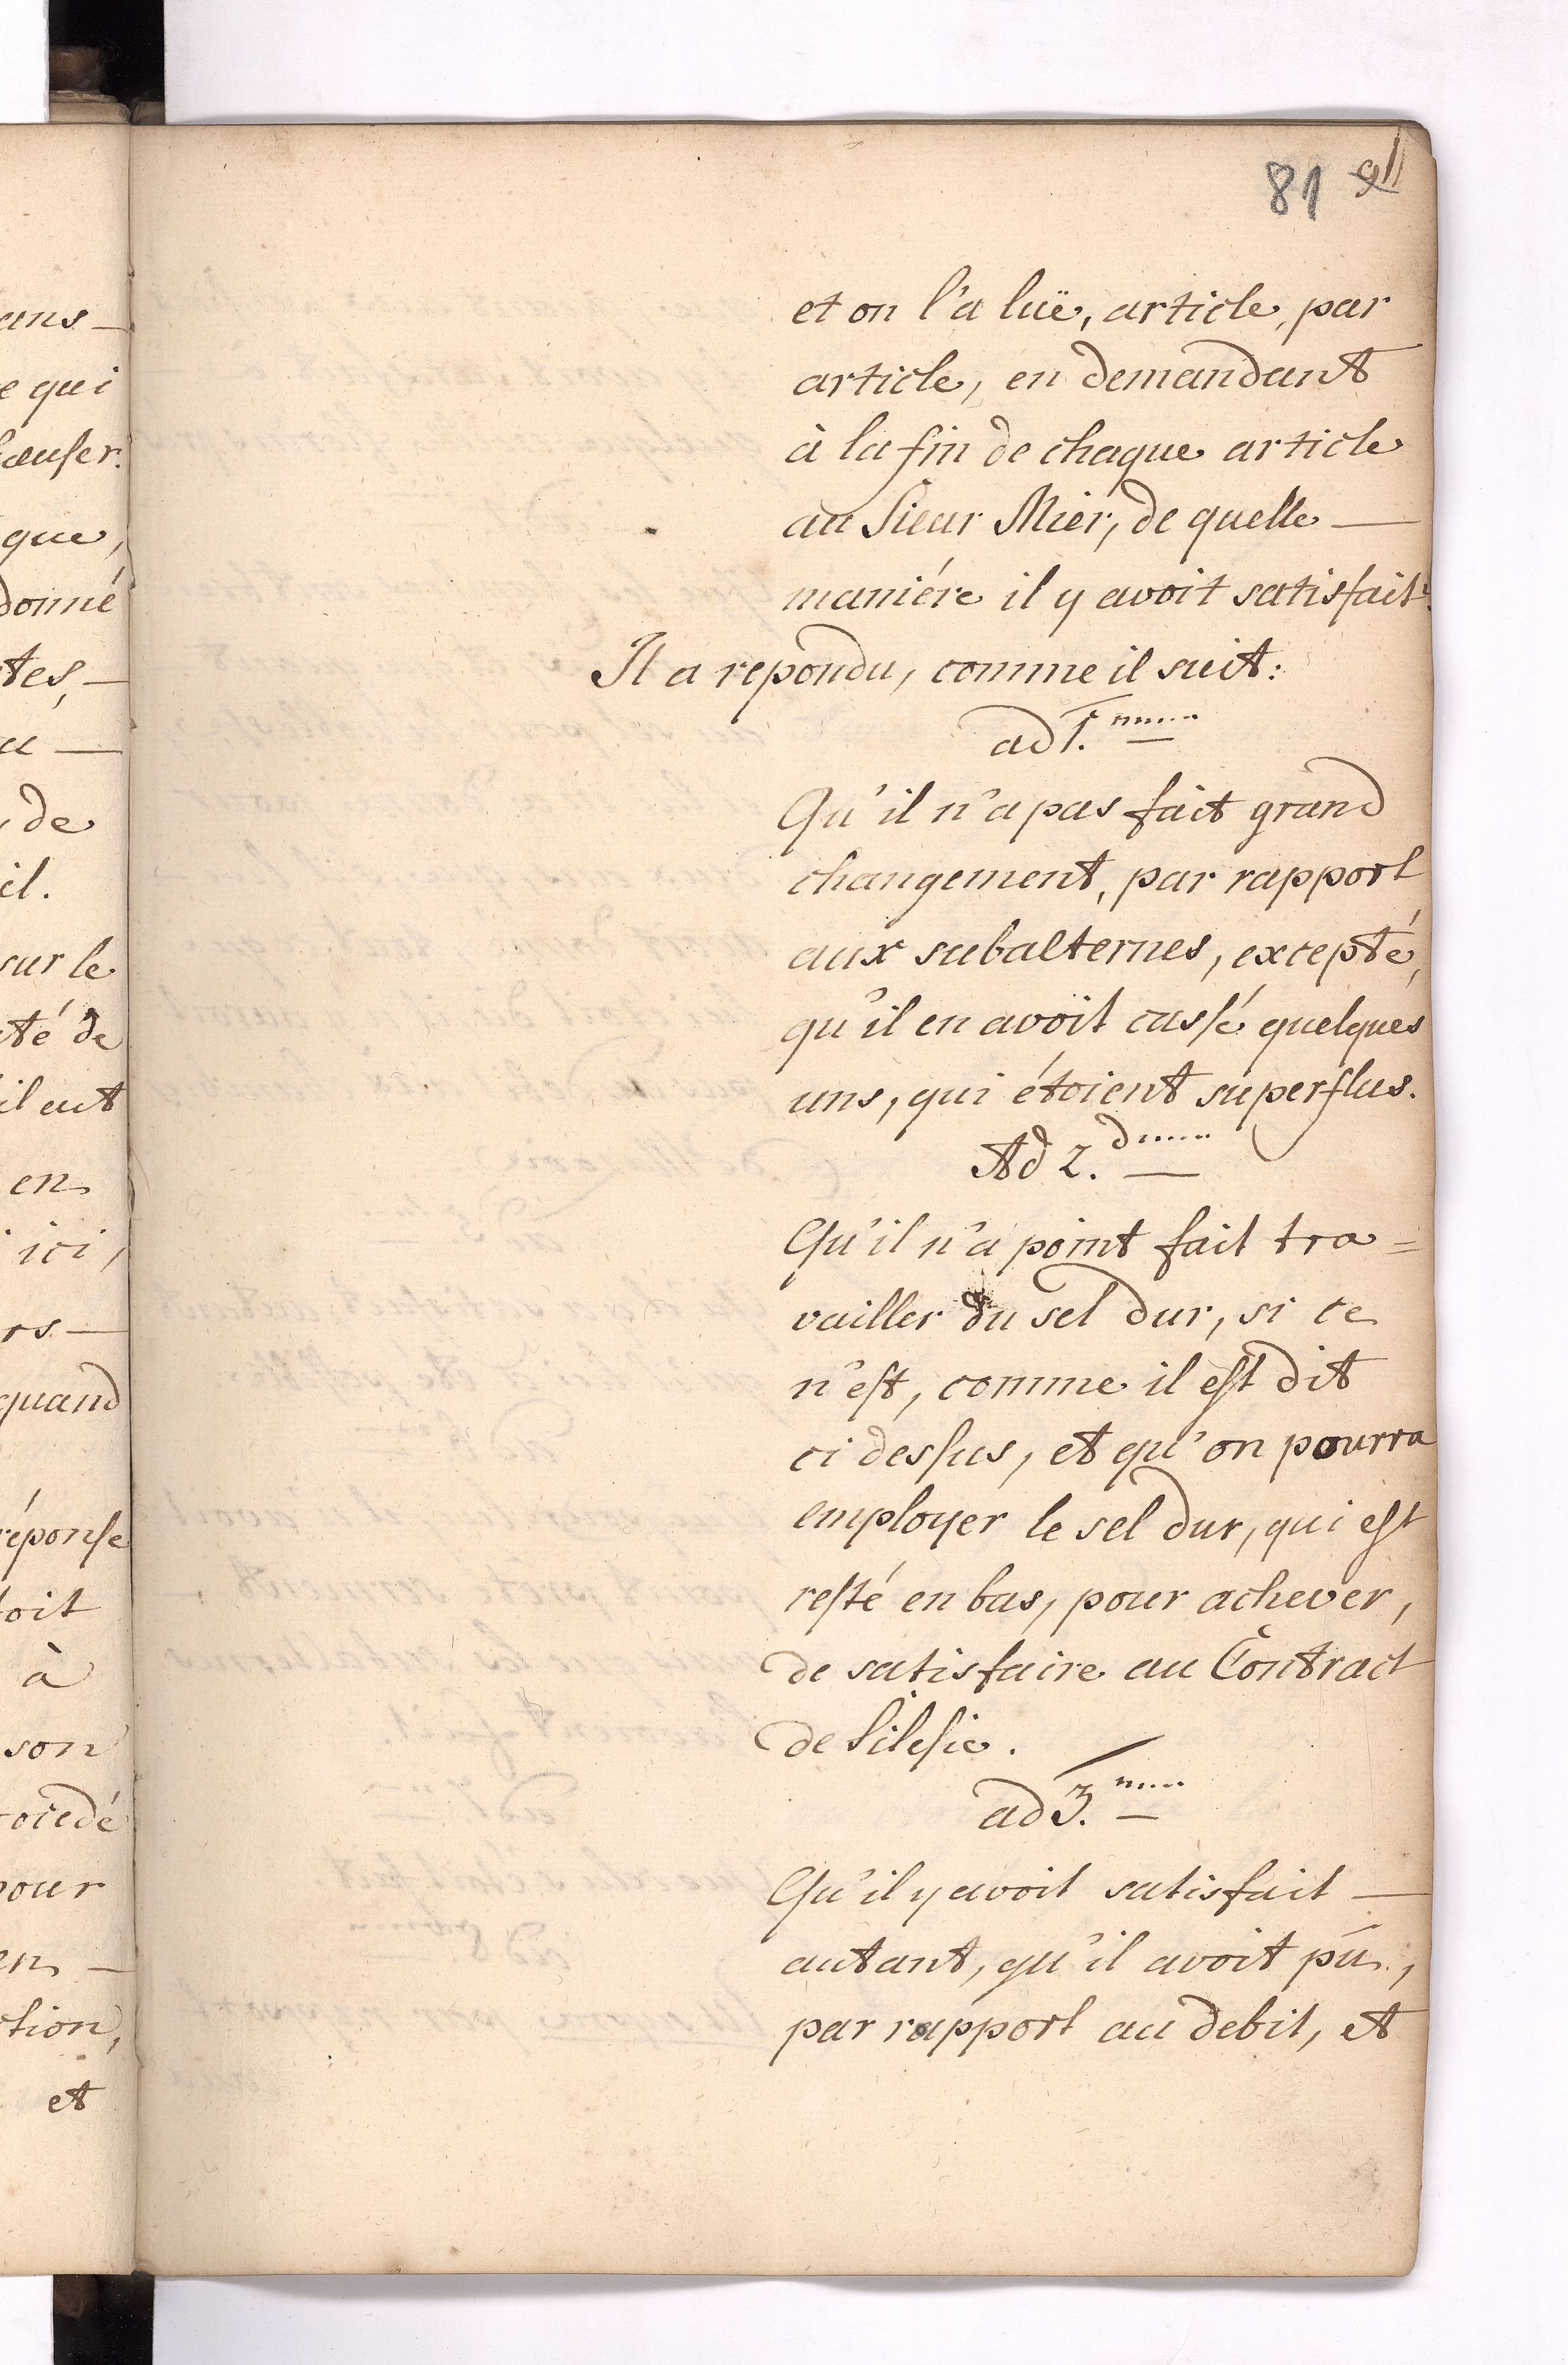 81
et on l'a luë, article, par
article, en demandant
à la fin de chaque article
au Sieur Mier, de quelle —
maniére il y avoit satisfait.
Il a repondu, comme il suit:
ad 1.mum
Qu'il n'a pas fait grand
changement, par rapport
aux subalternes, excepté,
qu'il en avoit cassé quelques
uns, qui étoient superflus.
Ad 2.dum
Qu'il n'a point fait tra=
vailler du sel dur, si ce
n'est, comme il est dit
ci dessus, et qu'on pourra
employer le sel dur, qui est
resté en bas, pour achever,
de satisfaire au Contract
de Silesie.
ad 3.um
Qu'il y avoit satisfait —
autant, qu'il avoit pû,
par rapport au debit, et
ans —
e qui
que,
donné
tes, —
de
il.
sur le
té de
il eut
en
ici,
rs —
quand
réponse
oit
à
son
océdé
pour
en —
ction,
et